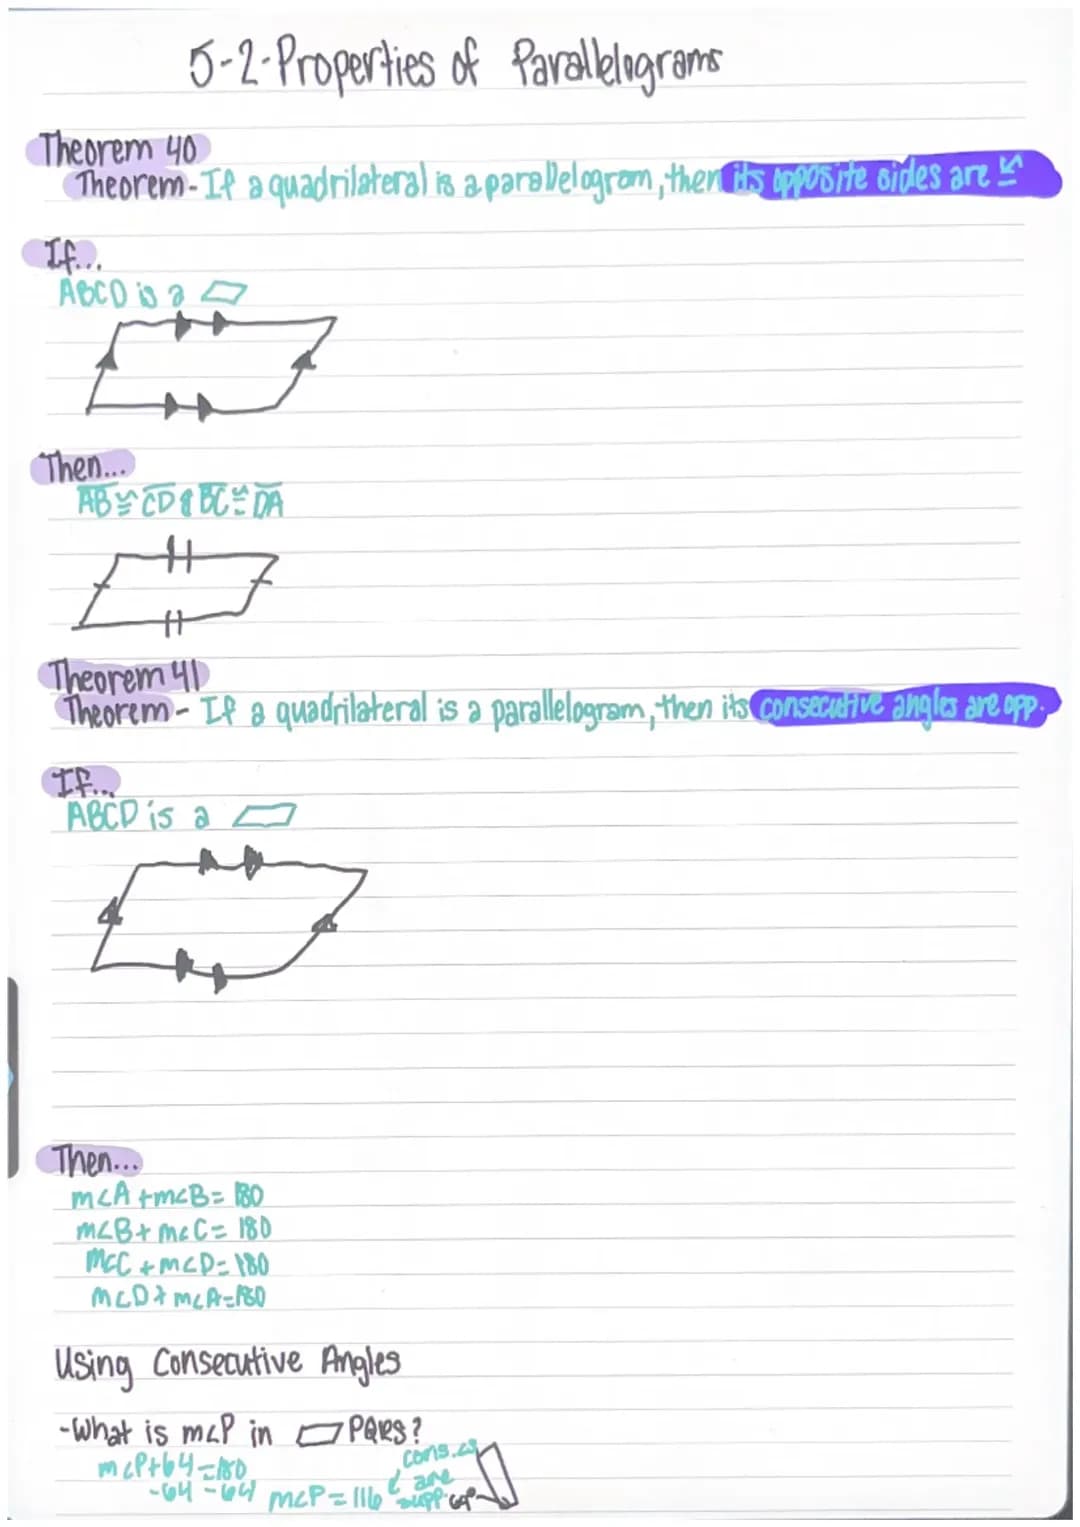 5-2-Properties of Parallelograms
Theorem 40
Theorem-If a quadrilateral is a parallelogram, then its opposite sides are ≅
If...
ABCD is a ▱
Then...
AB ≅ CD & BC ≅ DA
Theorem 41
Theorem - If a quadrilateral is a parallelogram, then its consecutive angles are opp.
If...
ABCD is a ▱
Then...
m∠A + m∠B = 180
m∠B + m∠C = 180
m∠C + m∠D = 180
m∠D + m∠A = 180
Using Consecutive Angles
-What is m∠P in ▱ PQRS?
m∠P+64=180
-64 -64
m∠P = 116
cons. ∠s
are
supp.
64°